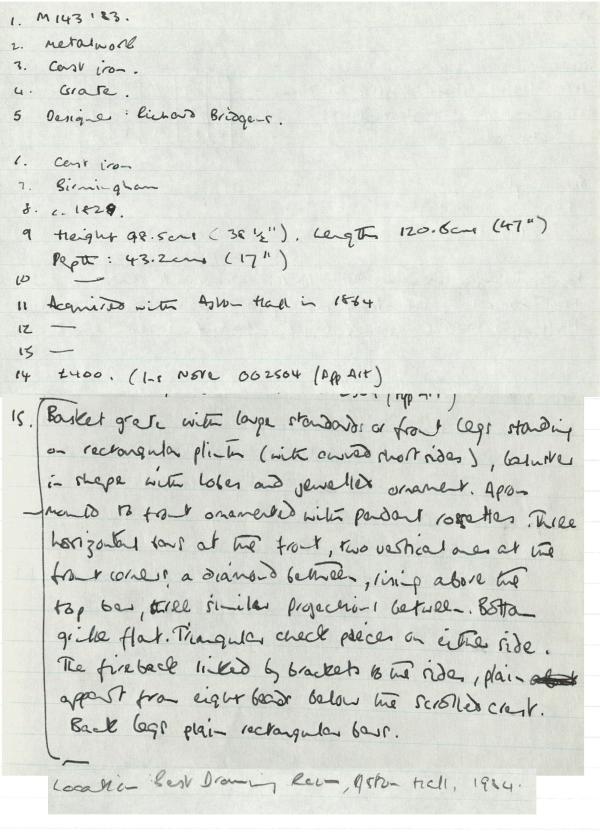 1. M143'83.
2. Metalwork
3. Cast iron.
4. Grate.
5 Designer: Richard Bridgens.
6. Cast iron
7. Birmingham
8. c. 1829.
9 Height 98.5cms (38 ½"). Length 120.6cms (47")
Depth: 43.2cms (17")
10 —
11 Acquired with Aston Hall in 1864
12 —
13 —
14 £400. (Ins Note 002504 (App Art)
(App Art)
15. Basket grate with large standards or front legs standing
on rectangular plinths (with curved short sides), baluster
in shape with lobes and jewelled ornament. Apron
mould to front ornamented with pendant rosettes. Three
horizontal bars at the front, two vertical ones at the
front corners, a diamond between, rising above the
top bar, three similar projections between. Bottom
grille flat. Triangular cheek pieces on either side.
The fireback linked by brackets to the sides, plain
appart from eight beads below the scrolled crest.
Back legs plain rectangular bars.
Location Best Drawing Room, Aston Hall, 1984.